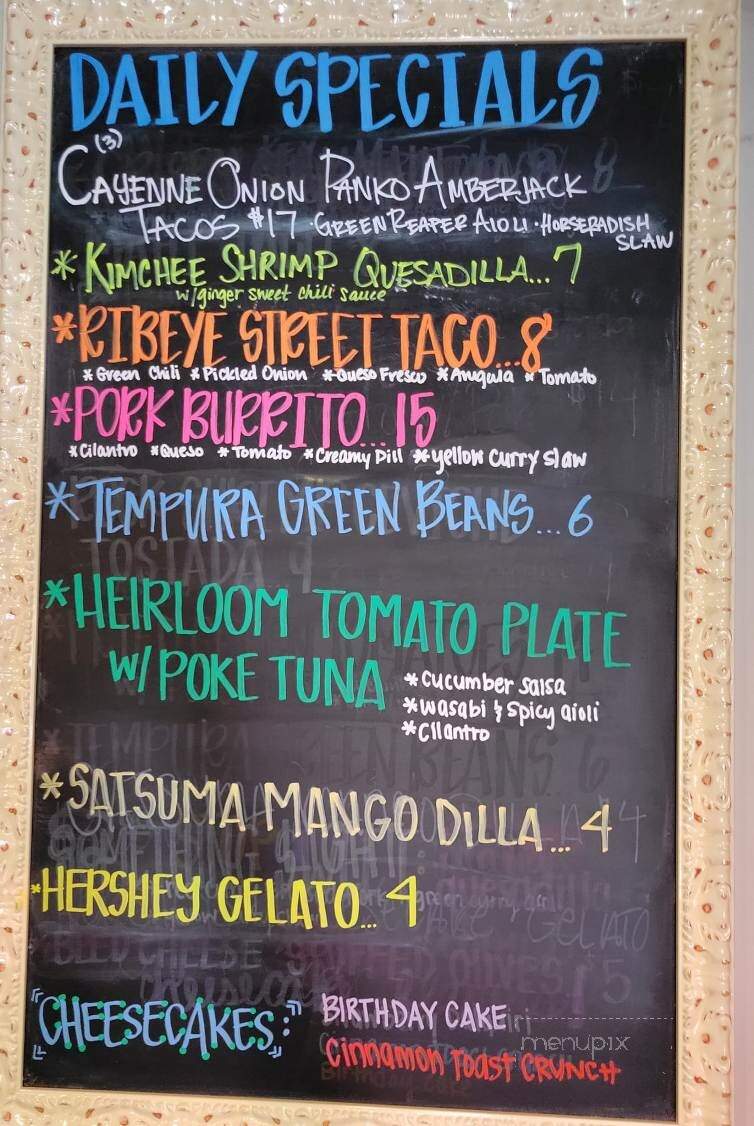 DAILY SPECIALS
(3)
CAYENNE ONION PANKO AMBERJACK
TACOS $17 · GREEN REAPER AIOLI · HORSERADISH
SLAW
* KIMCHEE SHRIMP QUESADILLA... 7
w/ginger sweet chili sauce
* RIBEYE STREET TACO... 8
* Green Chili * Pickled Onion * Queso Fresco * Arugula * Tomato
* PORK BURRITO... 15
* Cilantro * Queso * Tomato * Creamy Dill * yellow curry slaw
* TEMPURA GREEN BEANS... 6
* HEIRLOOM TOMATO PLATE
W/ POKE TUNA
* cucumber salsa
* wasabi & spicy aioli
* cilantro
* SATSUMA MANGO DILLA... 4
* HERSHEY GELATO... 4
"CHEESECAKES:"
BIRTHDAY CAKE
Cinnamon Toast CRUNCH
menupix